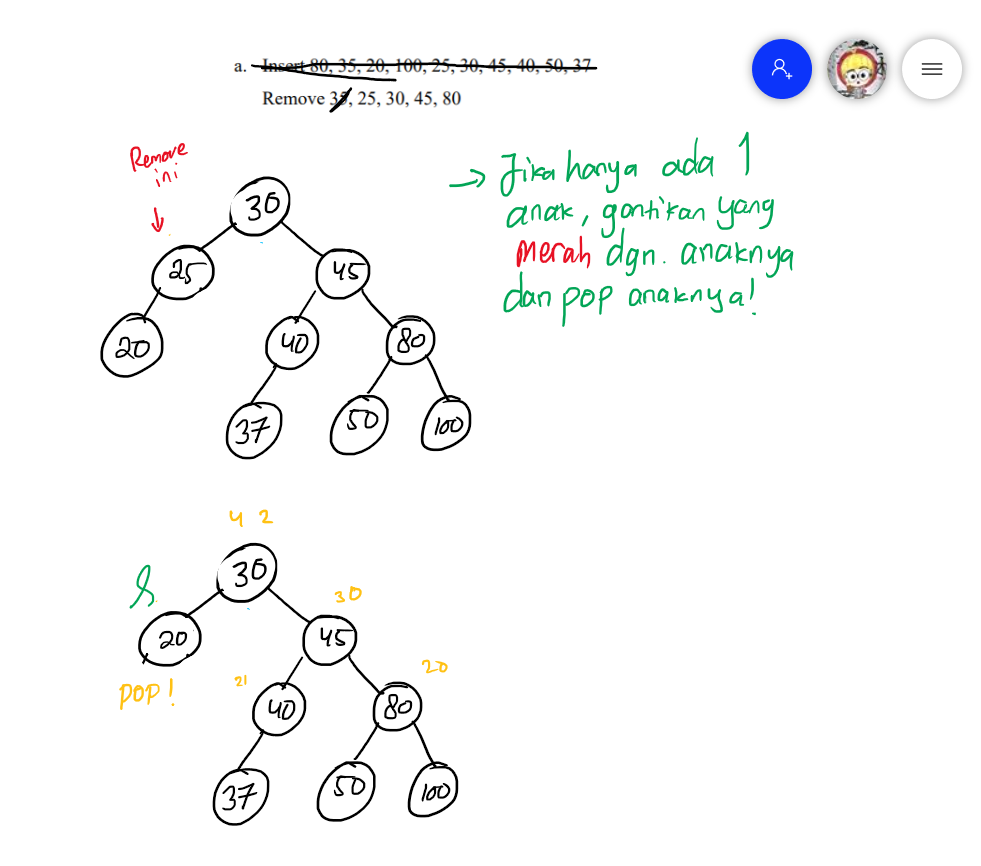 a. Insert 80, 35, 20, 100, 25, 30, 45, 40, 50, 37
Remove 35, 25, 30, 45, 80
Remove
ini
30
25
45
20
40
80
37
50
100
→ Jika hanya ada 1
anak, gantikan yang
merah dgn. anaknya
dan pop anaknya!
4 2
30
30
20
45
20
POP!
21
40
80
37
50
100